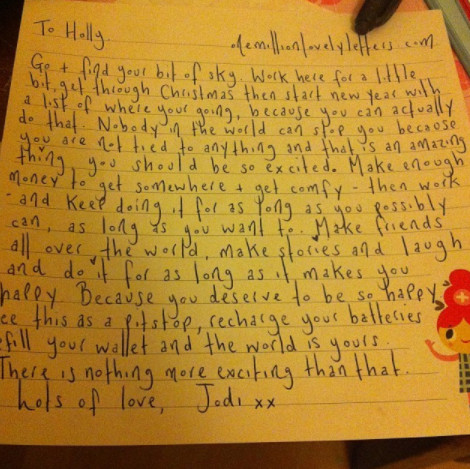 To Holly onemillionlovelyletters.com
Go + find your bit of sky. Work here for a little
bit, get through Christmas then start new year with
a list of where your going, because you can actually
do that. Nobody in the world can stop you because
you are not tied to anything and that is an amazing
thing - you should be so excited. Make enough
money to get somewhere + get comfy - then work
- and keep doing it for as long as you possibly
can, as long as you want to. Make friends
all over the world, make stories and laugh
and do it for as long as it makes you
happy Because you deserve to be so happy
ee this as a pitstop, recharge your batteries
efill your wallet and the world is yours.
There is nothing more exciting than that.
Lots of love, Jodi xx